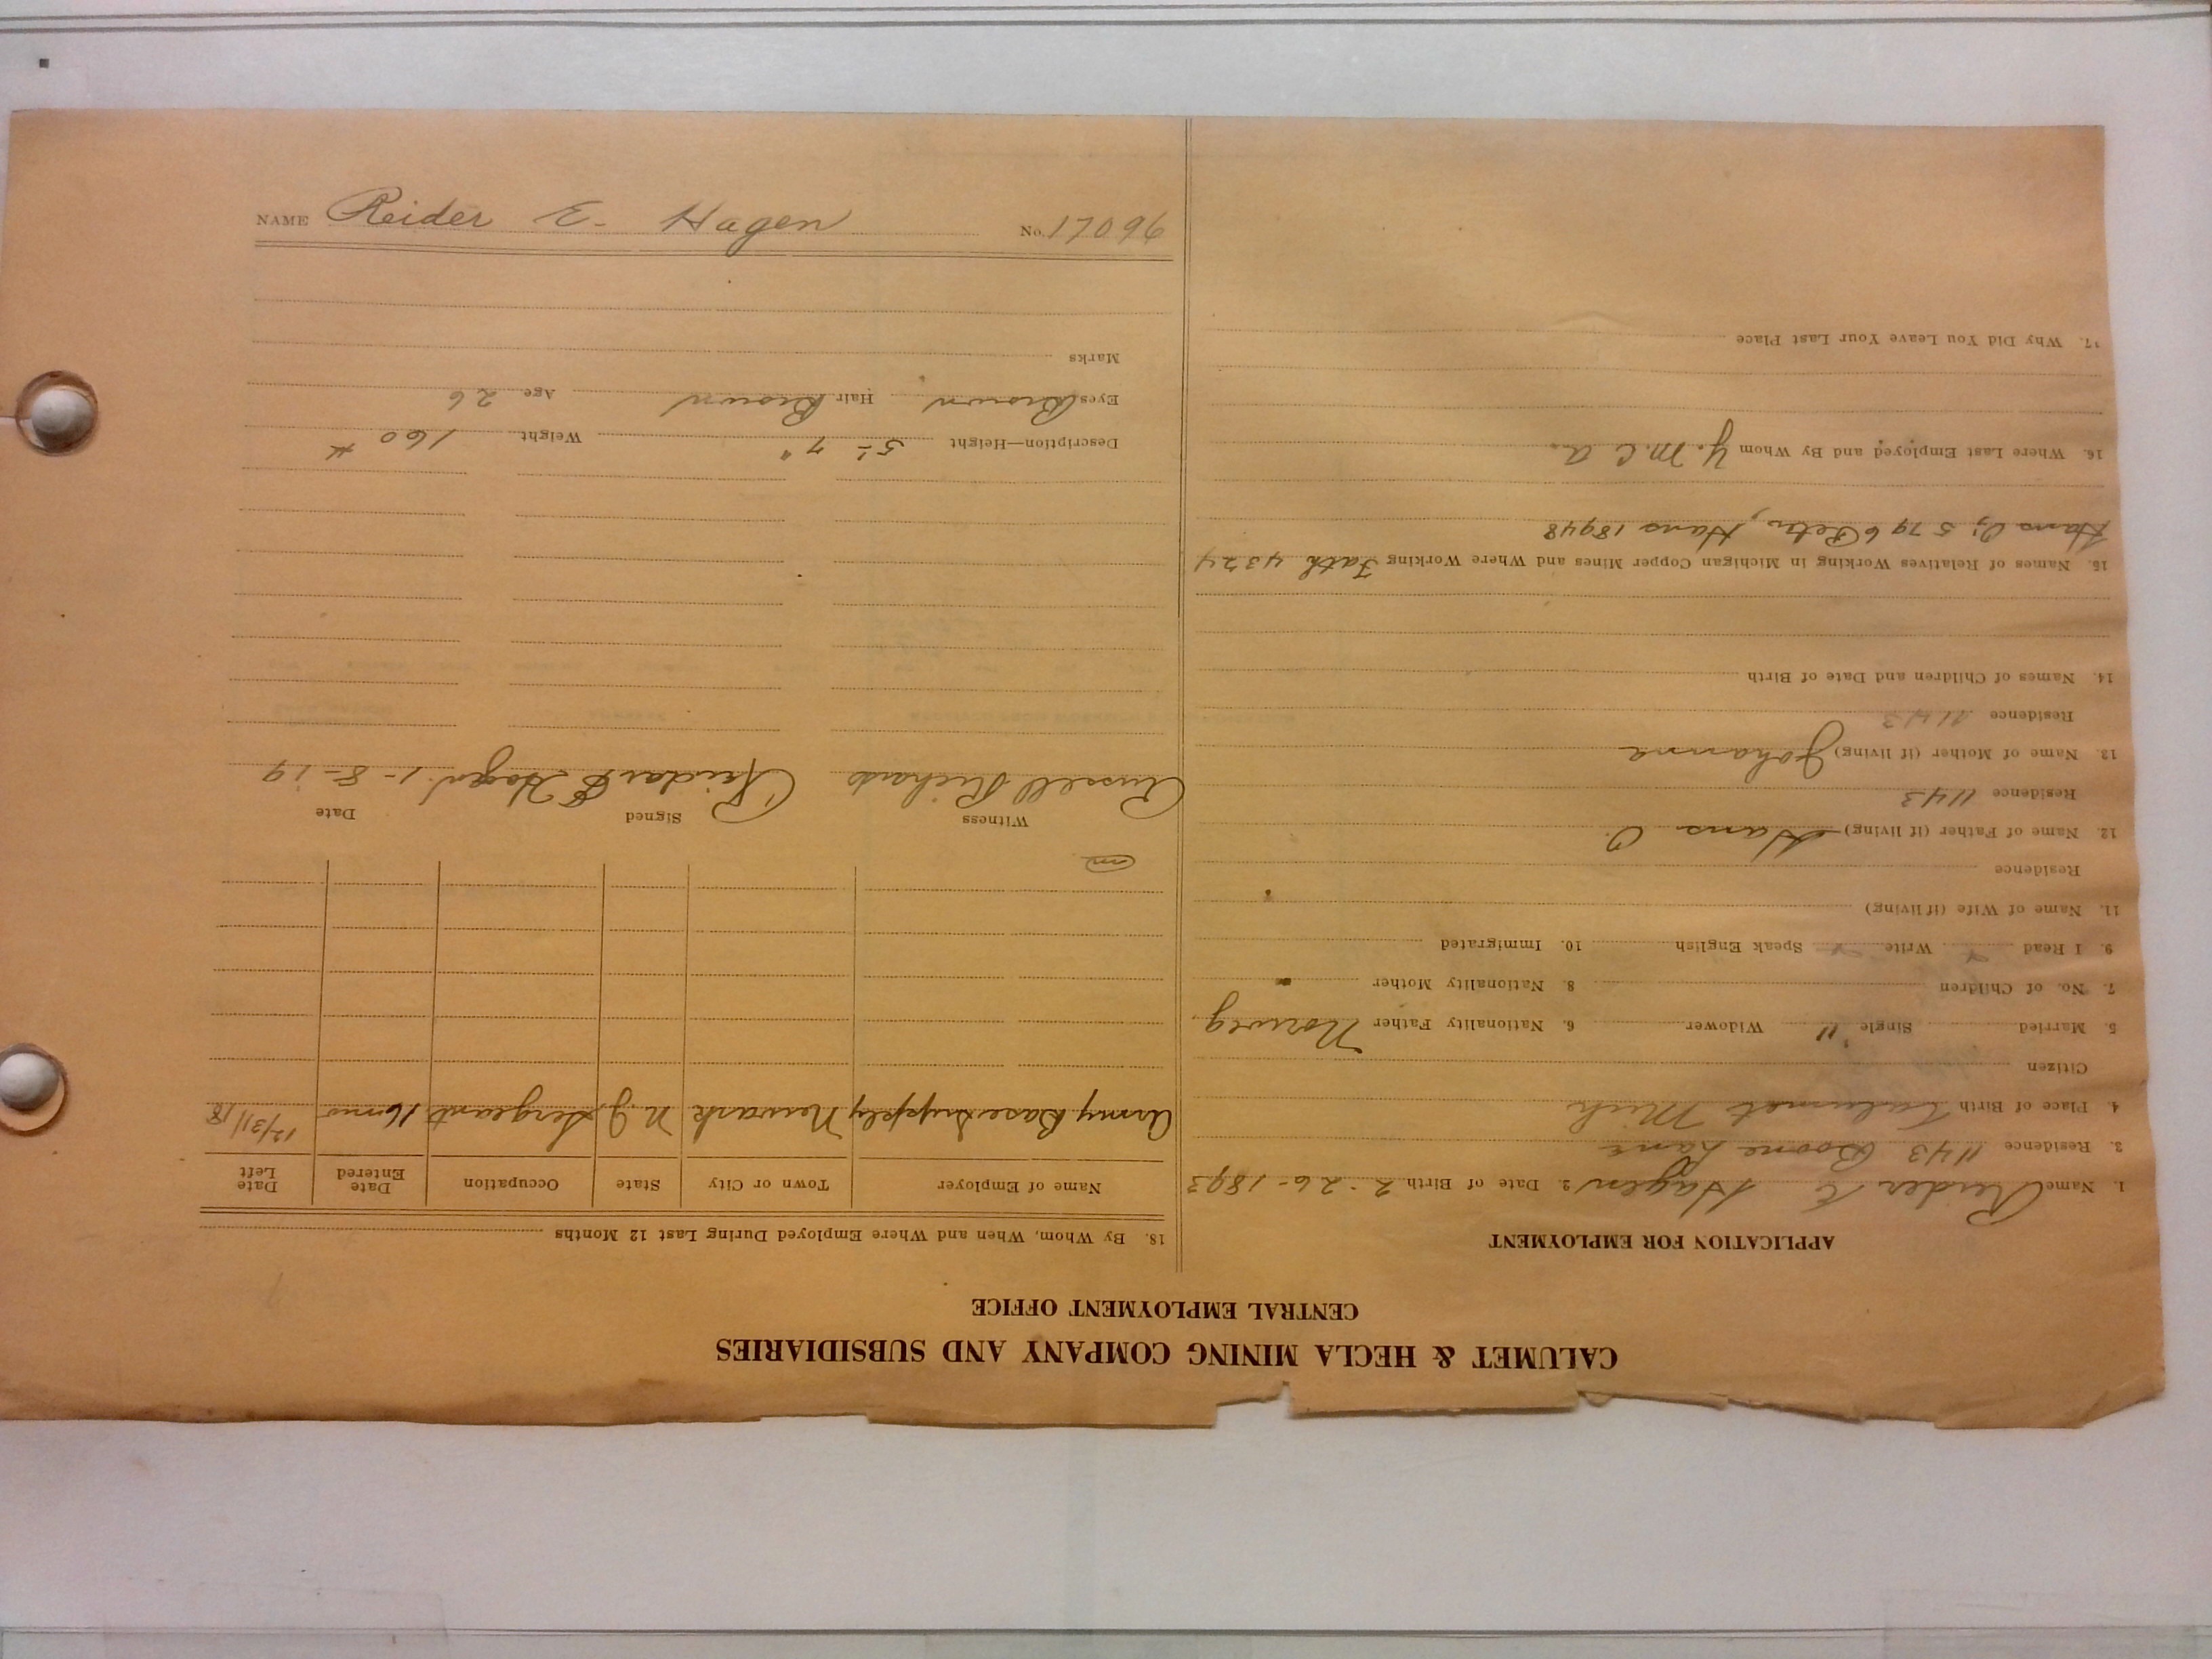 CALUMET & HECLA MINING COMPANY AND SUBSIDIARIES
CENTRAL EMPLOYMENT OFFICE
APPLICATION FOR EMPLOYMENT
1. Name Reider E Hagen 2. Date of Birth 2-26-1893
3. Residence 1143 Boone Lane
4. Place of Birth Calumet Mich
Citizen
5. Married Single " Widower 6. Nationality Father Norweg
7. No. of Children 8. Nationality Mother "
9. I Read Write Speak English 10. Immigrated
11. Name of Wife (if living)
Residence
12. Name of Father (if living) Hans O.
Residence 1143
13. Name of Mother (if living) Johanna
Residence 1143
14. Names of Children and Date of Birth
15. Names of Relatives Working in Michigan Copper Mines and Where Working Fath 4324
Hans O; 5796 Peter, Hans 18948
16. Where Last Employed and By Whom Y.M.C.A.
17. Why Did You Leave Your Last Place
18. By Whom, When and Where Employed During Last 12 Months
Name of Employer Town or City State Occupation Date Entered Date Left
Army Base Supply Newark N.J. Sergeant 16 mo 12/31/18
Witness Signed Date
Russell Richards Reidar E Hagen 1-8-19
Description—Height 5'-7" Weight 160 #
Eyes Brown Hair Brown Age 26
Marks
NAME Reider E. Hagen No. 17096